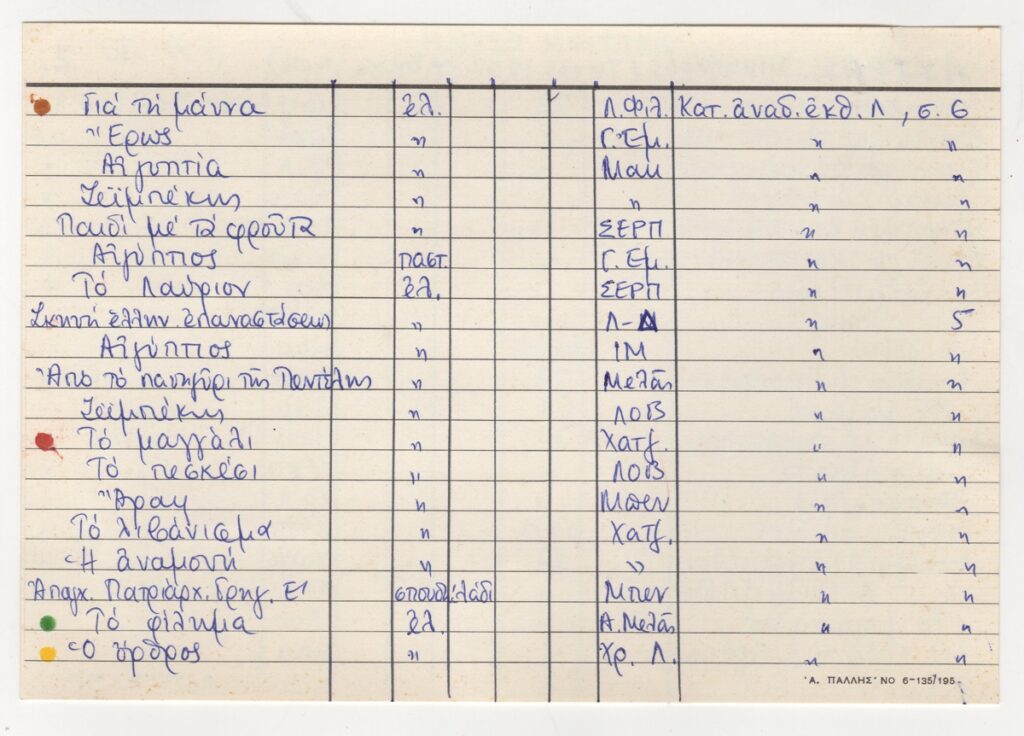 Γιά τή μάννα ἐλ. Λ.Φιλ. Κατ. ἀναδ. ἐκθ. Λ, σ. 6
Ἔρως " Γ. Ἐμ. " "
Αἰγυπτία " Μακ " "
Ζεϊμπέκης " " " "
Παιδί μέ τά φροῦτα " ΣΕΡΠ " "
Αἰγύπτιος παστ. Γ. Ἐμ. " "
Τό Λαύριον ἐλ. ΣΕΡΠ " "
Σκηνή ἑλλην. ἐπαναστάσεως " Λ-Δ " 5
Αἰγύπτιος " ΙΜ " "
Ἀπό τό πανηγύρι τῆς Πεντέλης " Μελᾶς " "
Ζεϊμπέκης " ΛΟΒ " "
Τό μαγγάλι " Χατζ. " "
Τό πεσκέσι " ΛΟΒ " "
Ἄραψ " Μπεν " "
Τό λιβάνισμα " Χατζ. " "
Ἡ ἀναμονή " " " "
Ἀπαγχ. Πατριάρχ. Γρηγ. Ε' σπουδή ἐλάδι Μπεν " "
Τό φίλημα ἐλ. Α. Μελᾶς " "
Ὁ ὄρθρος " Χρ. Λ. " "
'Α. ΠΑΛΛΗΣ' ΝΟ 6-135/195-